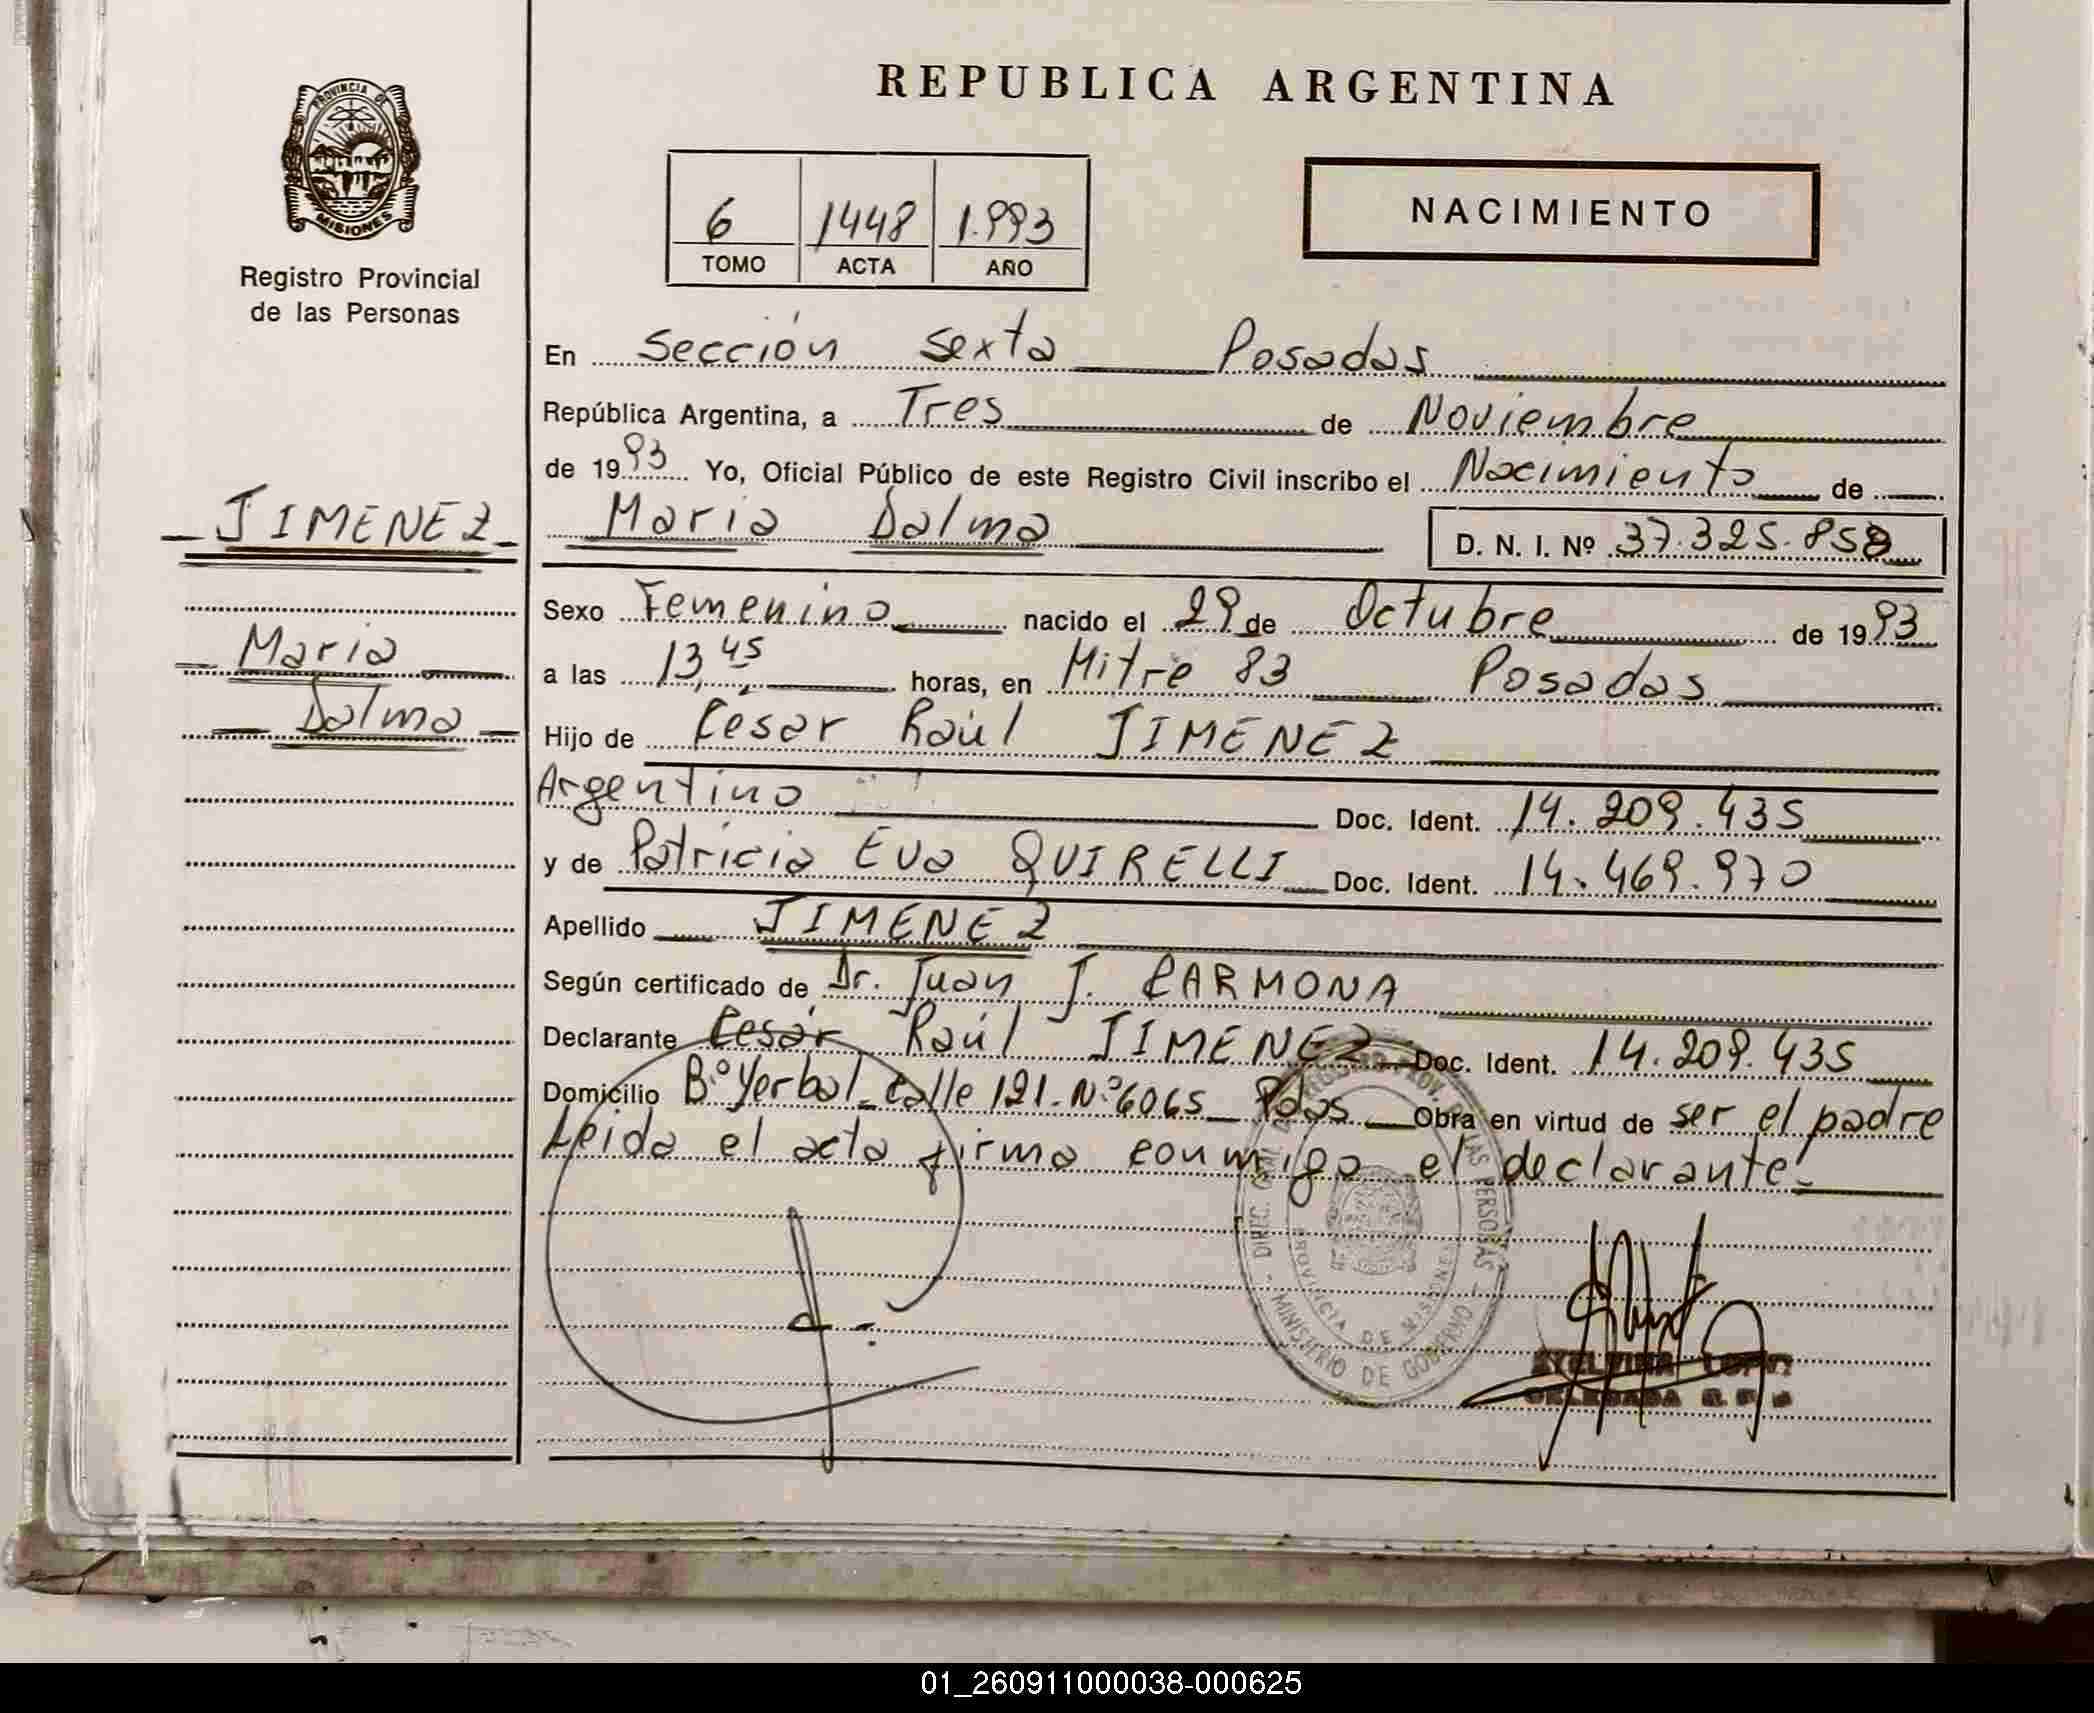 REPUBLICA ARGENTINA
PROVINCIA DE
MISIONES
Registro Provincial
de las Personas
6 1448 1.993
TOMO ACTA AÑO
NACIMIENTO
En Sección Sexta Posadas
República Argentina, a Tres de Noviembre
de 1993 Yo, Oficial Público de este Registro Civil inscribo el Nacimiento de
JIMENEZ
Maria Dalma D. N. I. Nº 37.325.858
Sexo Femenino nacido el 29 de Octubre de 1993
Maria
Dalma
a las 13,45 horas, en Mitre 83 Posadas
Hijo de César Raúl JIMENEZ
Argentino Doc. Ident. 14.209.435
y de Patricia Eva QUIRELLI Doc. Ident. 14.469.970
Apellido JIMENEZ
Según certificado de Dr. Juan J. CARMONA
Declarante Cesár Raúl JIMENEZ Doc. Ident. 14.209.435
Domicilio Bº Yerbal calle 121-Nº6065 Pdas Obra en virtud de ser el padre
Leida el acta firma conmigo el declarante.
PROVINCIA DE MISIONES
MINISTERIO DE GOBIERNO
DELEGADA
01_260911000038-000625